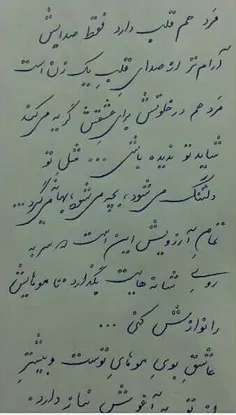 مرد هم قلب دارد فقط صدایش
آرام تر از صدای قلب یک زن است
مرد هم در خلوتش برای عشقش گریه می کند
شاید تو ندیده باشی ... مثل تو
دلتنگ می شود، بچه می شود، بهانه می گیرد ...
تمام آرزویش این است که سر به
روی شانه هایت بگذارد تا موهایش
را نوازش کنی ...
عاشق بوی موهای توست و بیشتر
از تو به آغوش نیاز دارد.